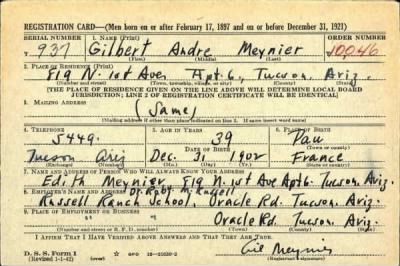 REGISTRATION CARD—(Men born on or after February 17, 1897 and on or before December 31, 1921)
SERIAL NUMBER 1. NAME (Print) ORDER NUMBER
T 937 Gilbert Andre Meynier 10046
(First) (Middle) (Last)
2. PLACE OF RESIDENCE (Print)
819 N. 1st Ave, Apt. 6, Tucson, Ariz.
(Number and street) (Town, township, village, or city) (County) (State)
[THE PLACE OF RESIDENCE GIVEN ON THE LINE ABOVE WILL DETERMINE LOCAL BOARD
JURISDICTION; LINE 2 OF REGISTRATION CERTIFICATE WILL BE IDENTICAL]
3. MAILING ADDRESS
(Same)
(Mailing address if other than place indicated on line 2. If same insert word same)
4. TELEPHONE 5. AGE IN YEARS 6. PLACE OF BIRTH
5449 39 Pau
DATE OF BIRTH (Town or county)
Tucson Ariz Dec. 31, 1902 France
(Exchange) (Number) (Mo.) (Day) (Yr.) (State or country)
7. NAME AND ADDRESS OF PERSON WHO WILL ALWAYS KNOW YOUR ADDRESS
Edith Meynier 819 N. 1st Ave Apt 6. Tucson, Ariz.
8. EMPLOYER'S NAME AND ADDRESS
Russell Ranch School, Oracle Rd. Tucson, Ariz.
9. PLACE OF EMPLOYMENT OR BUSINESS
Oracle Rd. Tucson, Ariz.
(Number and street or R. F. D. number) (Town) (County) (State)
I AFFIRM THAT I HAVE VERIFIED ABOVE ANSWERS AND THAT THEY ARE TRUE.
D. S. S. Form 1
(Revised 1-1-42) GPO Meynier